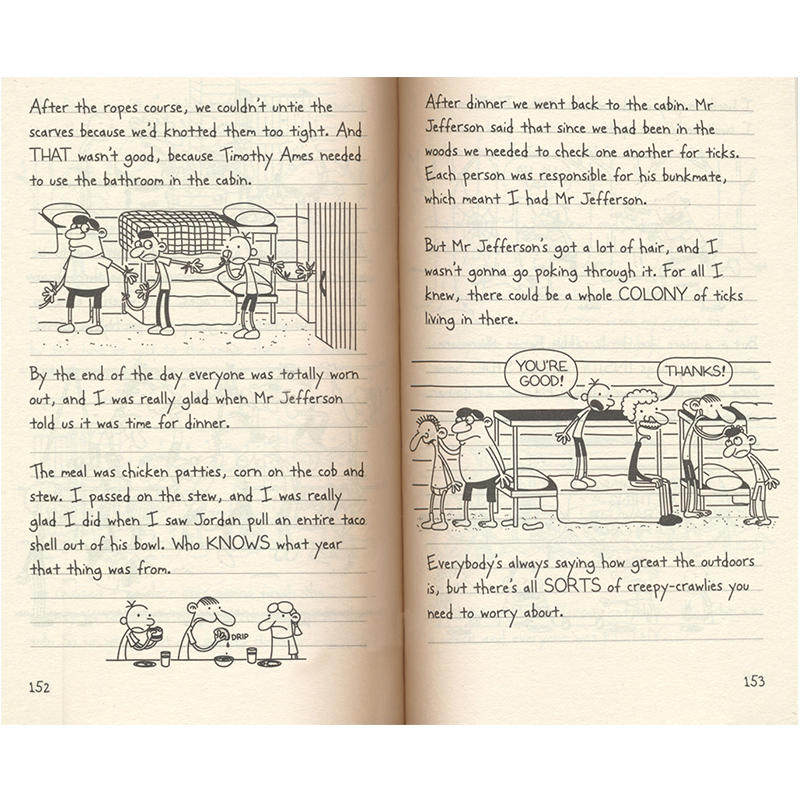 After the ropes course, we couldn't untie the
scarves because we'd knotted them too tight. And
THAT wasn't good, because Timothy Ames needed
to use the bathroom in the cabin.
By the end of the day everyone was totally worn
out, and I was really glad when Mr Jefferson
told us it was time for dinner.
The meal was chicken patties, corn on the cob and
stew. I passed on the stew, and I was really
glad I did when I saw Jordan pull an entire taco
shell out of his bowl. Who KNOWS what year
that thing was from.
DRIP
152
After dinner we went back to the cabin. Mr
Jefferson said that since we had been in the
woods we needed to check one another for ticks.
Each person was responsible for his bunkmate,
which meant I had Mr Jefferson.
But Mr Jefferson's got a lot of hair, and I
wasn't gonna go poking through it. For all I
knew, there could be a whole COLONY of ticks
living in there.
YOU'RE
GOOD!
THANKS!
Everybody's always saying how great the outdoors
is, but there's all SORTS of creepy-crawlies you
need to worry about.
153